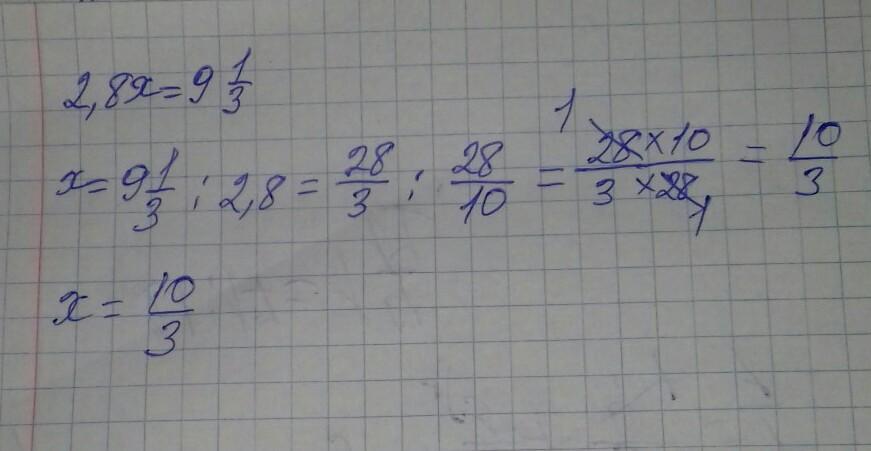 2,8x = 9 1/3
x = 9 1/3 : 2,8 = 28/3 : 28/10 = (28 × 10)/(3 × 28) = 10/3
x = 10/3